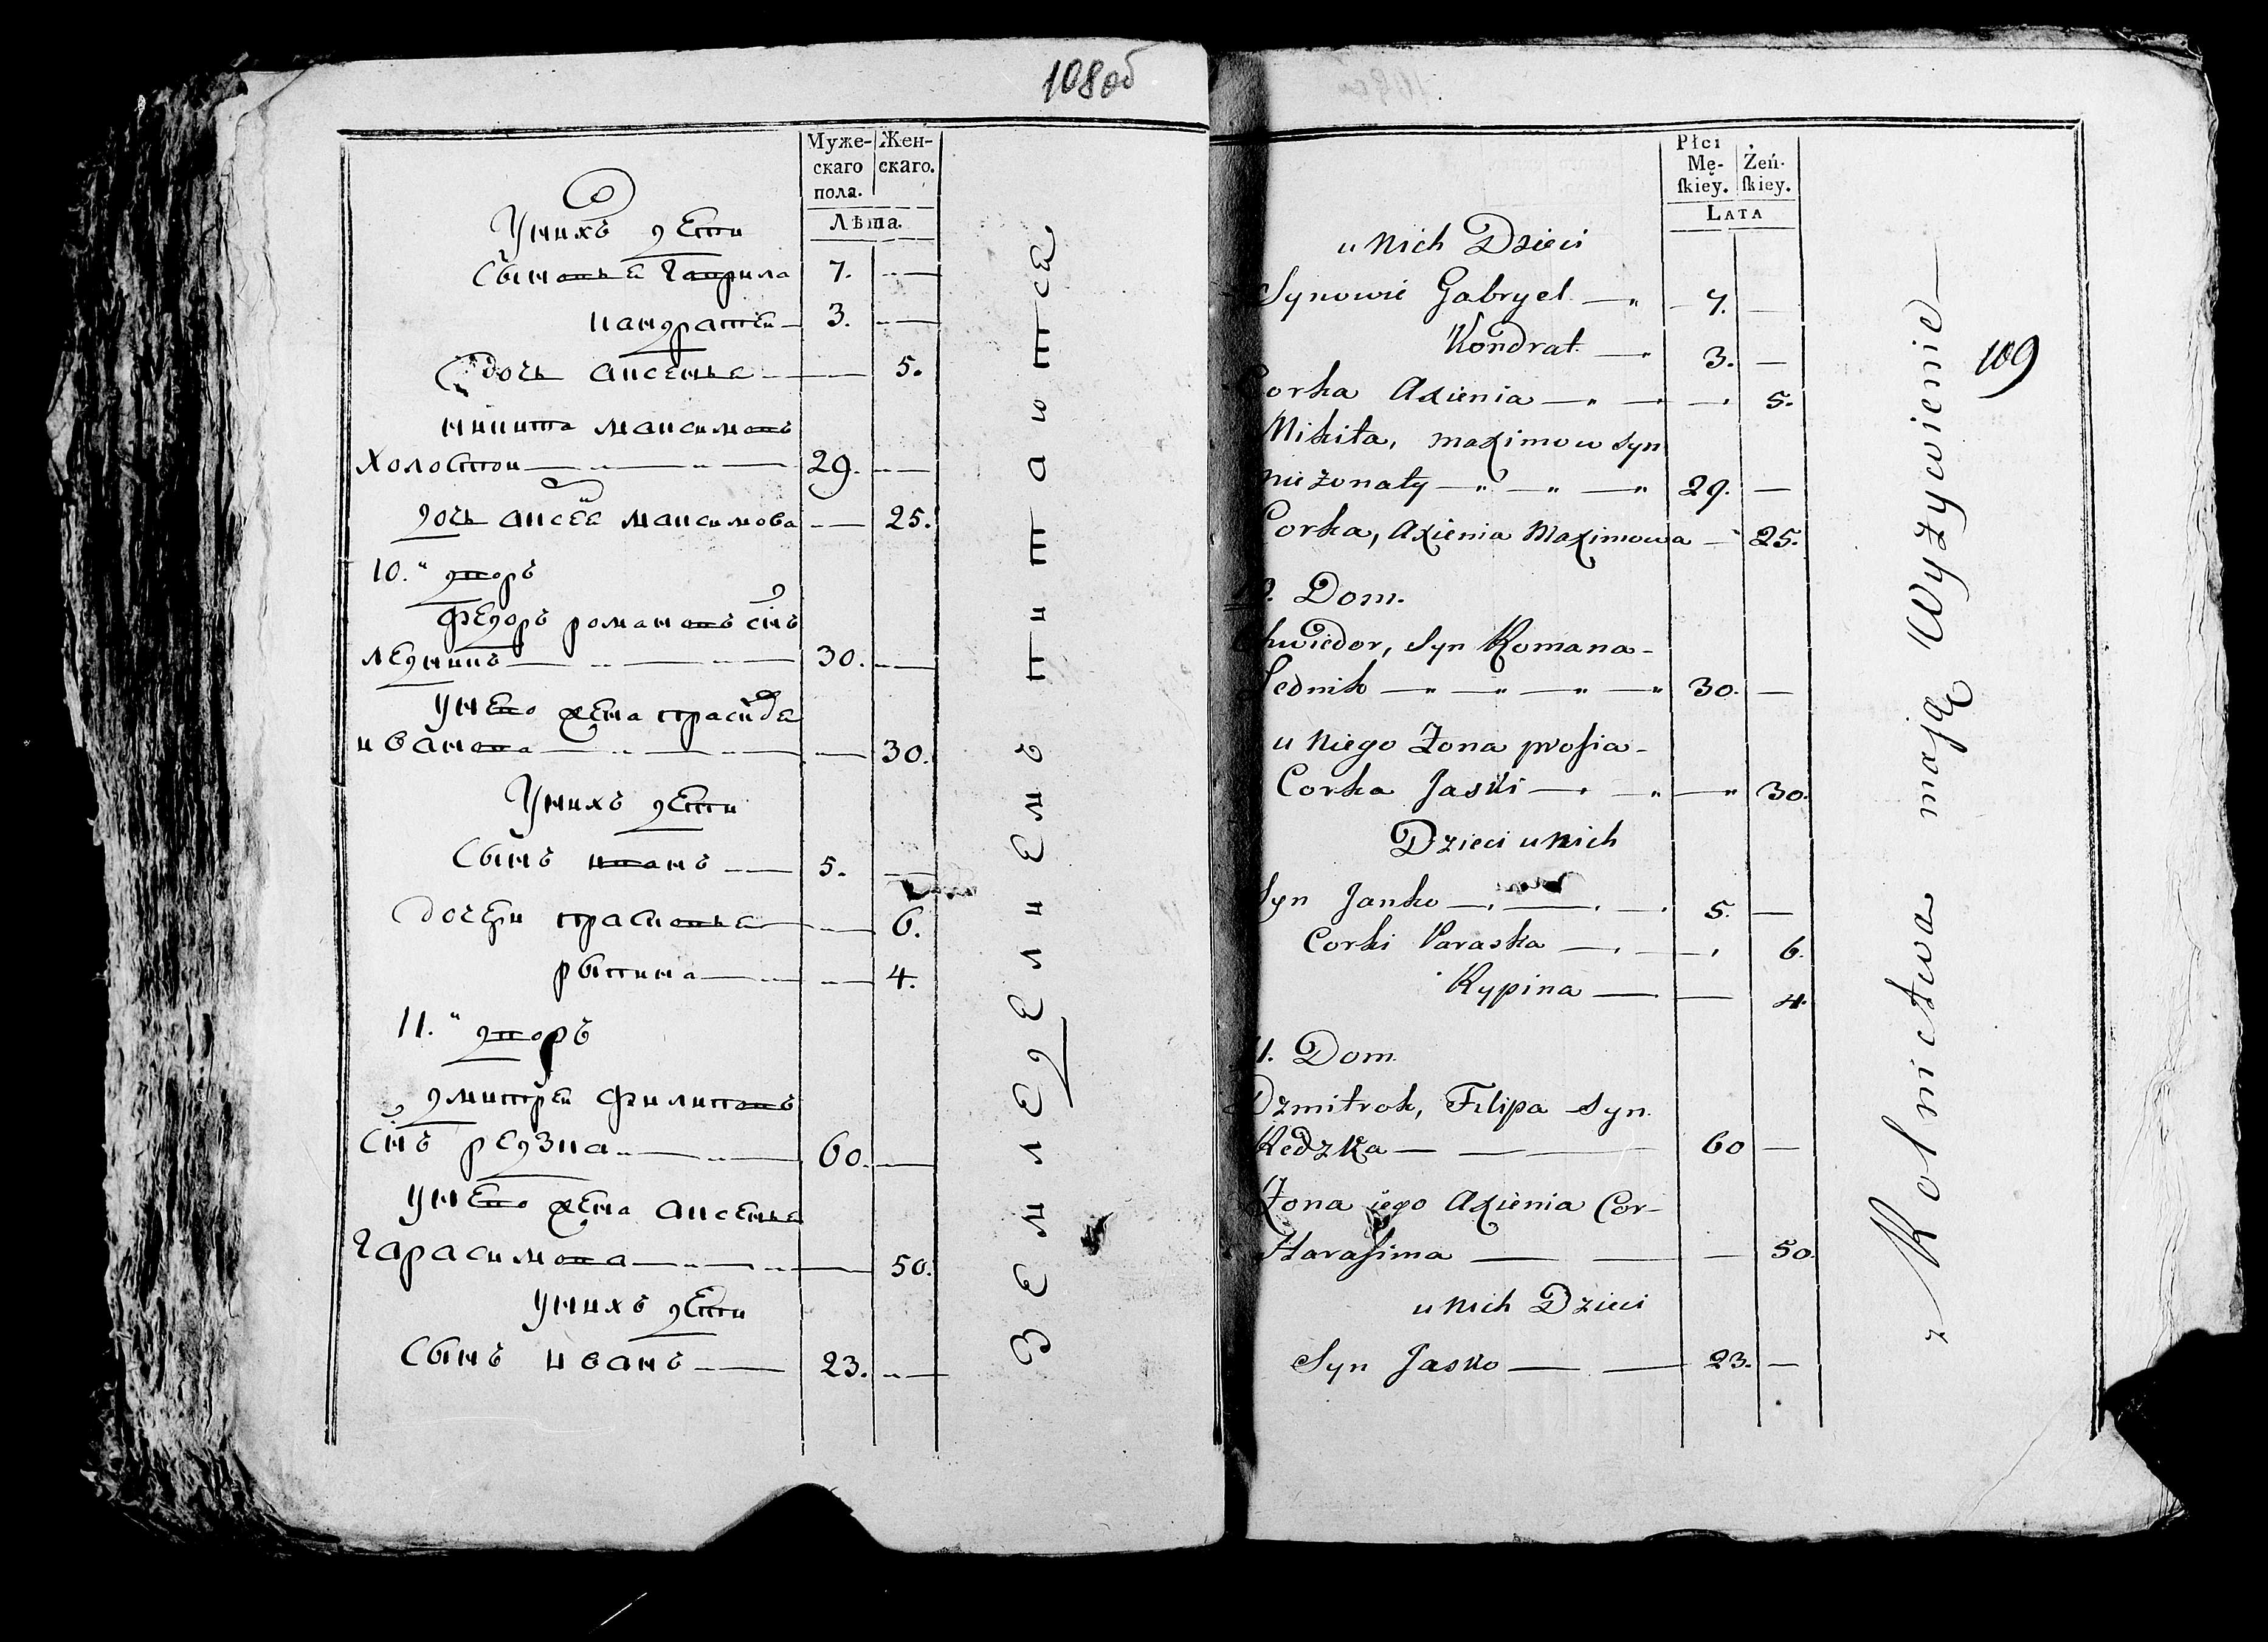 108 об
Муже-
скаго
пола.
Жен-
скаго.
Лѣта.
У нихъ дети
Сыновья Гаврила 7.
Кандратей 3.
дочь Аксенья 5.
Никита Максимовъ
холостой 29.
дочь Максимова 25.
10. дворъ
Федоръ Романовъ снъ
Ледникъ 30.
У него жена
Иванова 30.
У нихъ дети
Сынъ Иванъ 5.
дочери 6.
Рыпина 4.
11. дворъ
Дмитрей Филиповъ
снъ Редзка 60.
У него жена Аксенья
Гарасимова 50.
У нихъ дети
Сынъ Иванъ 23.
Земледелиемъ питаютса
109
Płci
Mę-
ſkiéy.
Żeń-
ſkiey.
Lata
u Nich Dzieci
Synowie Gabryel 7.
Kondrat 3.
Corka Axienia 5.
Mikita, Maximow Syn
nieżonaty 29.
Corka, Axienia Maximowa 25.
10. Dom.
Chwiedor, Syn Romana
Lednik 30.
u Niego Żona proſia
Corka Jaski 30.
Dzieci u Nich
Syn Janko 5.
Corki Paraska 6.
Rypina 4.
11. Dom.
Dzmitrok, Filipa Syn.
Redzka 60
Żona iego Axienia Cor-
Haraſima 50.
u Nich Dzieci
Syn Jasko 23.
z Rolnictwa mają Wyżywienie